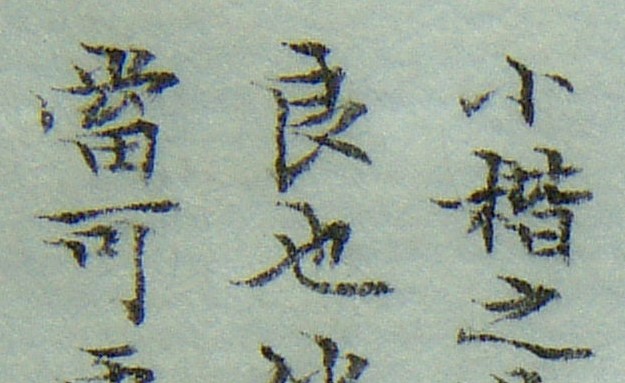 小楷之
良也
當可